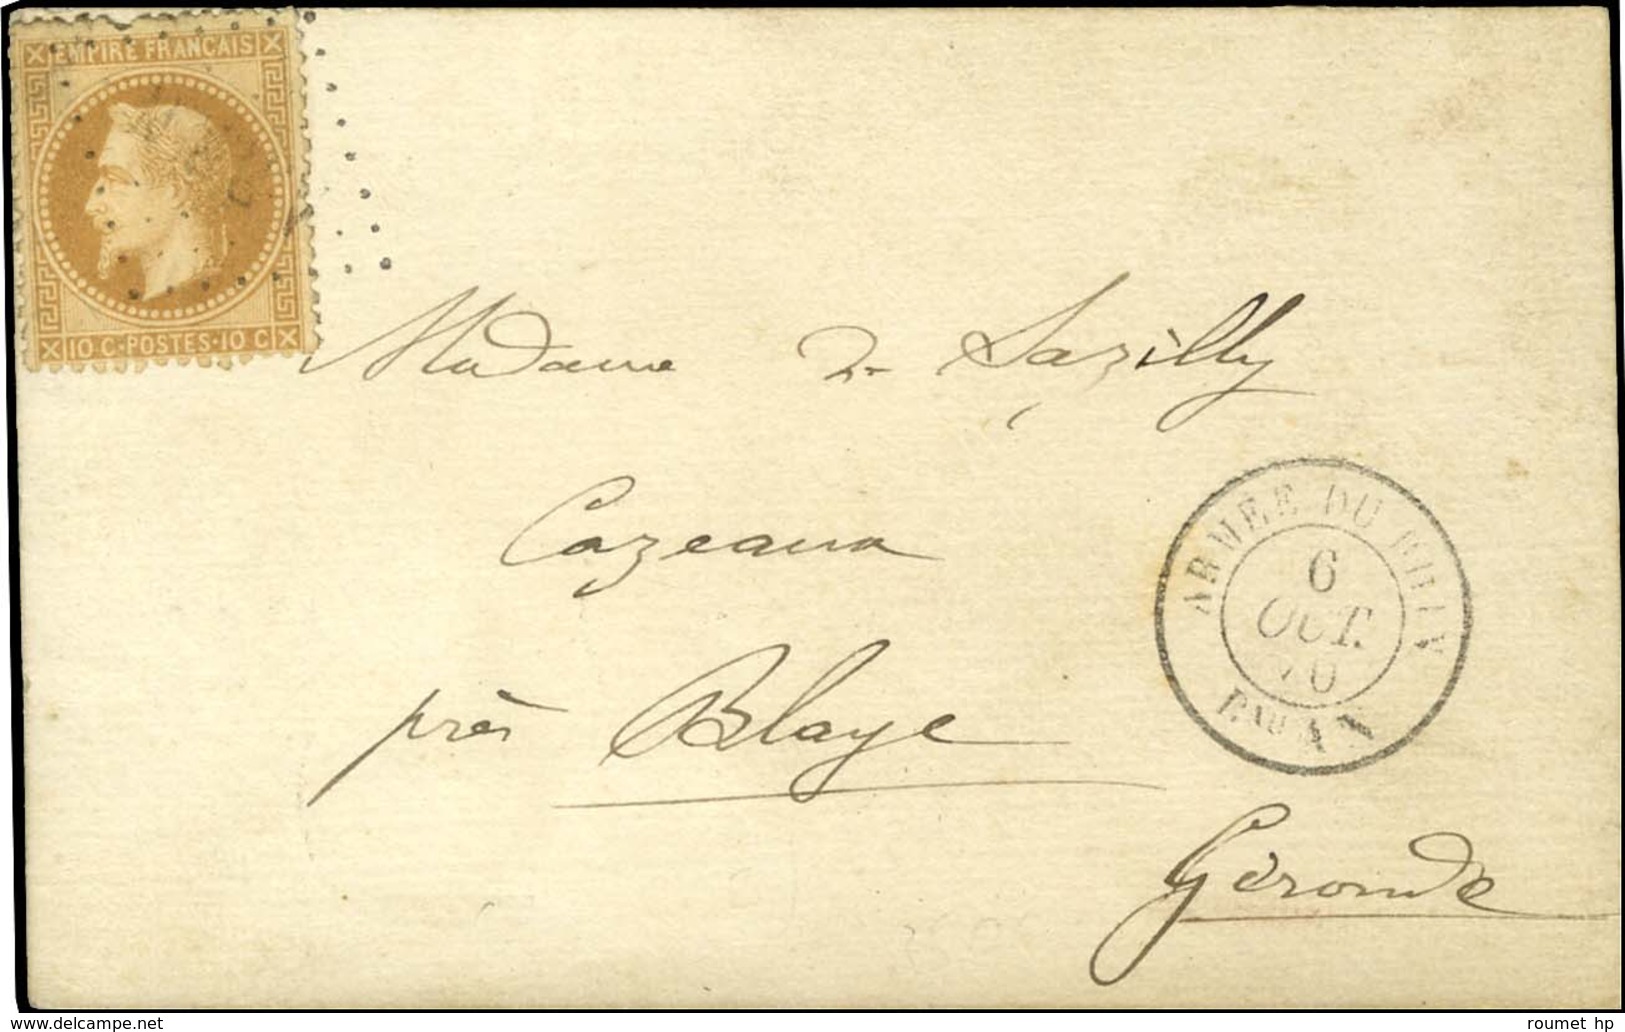 EMPIRE FRANCAIS
10 C·POSTES·10 C
Madame de Sazilly
Cazeaux
près Blaye
Gironde
ARMÉE DU RHIN
6
OCT.
70
Bau A
www.delcampe.net
roumet hp